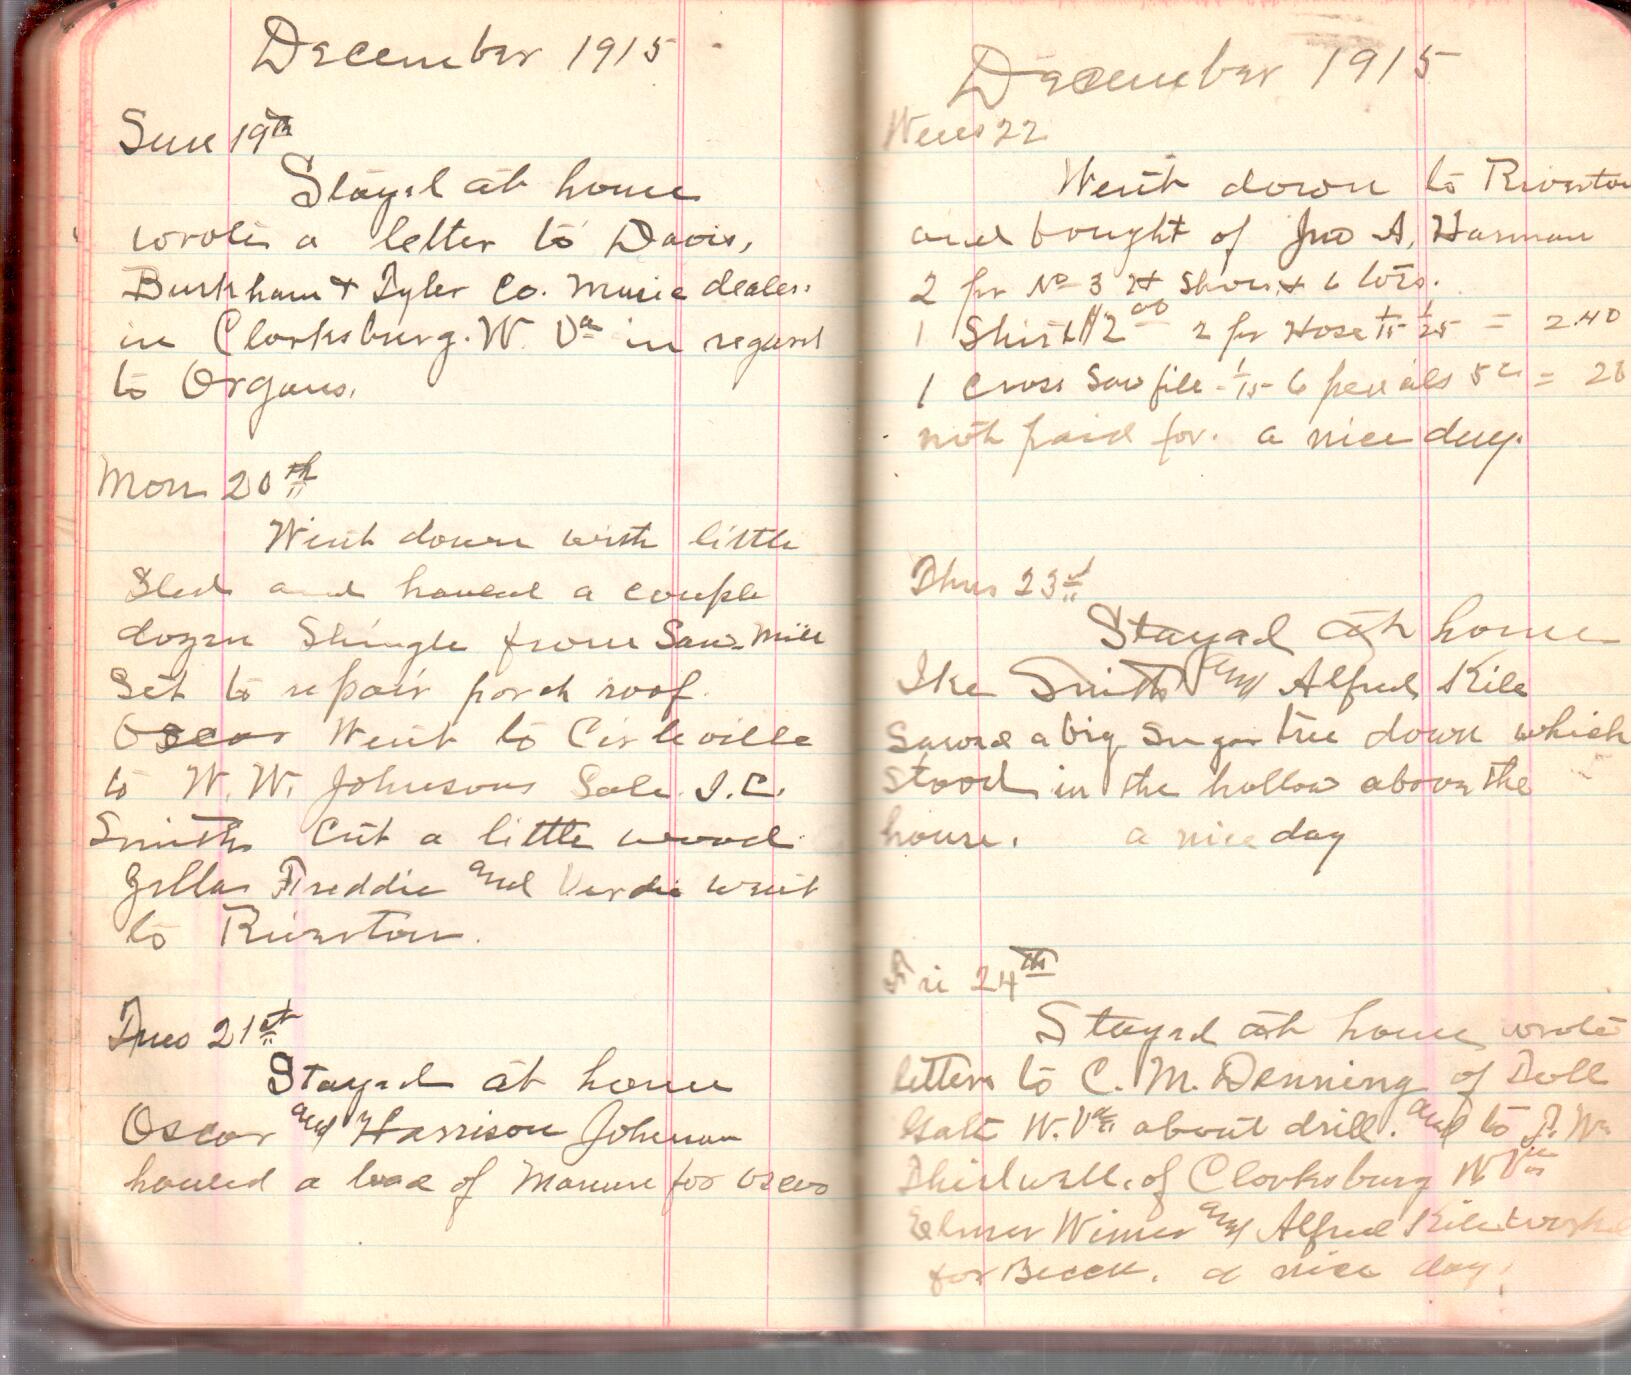 December 1915
Sun 19th
Stayed at home
wrote a letter to Davis,
Burkham & Tyler Co. Music dealer.
in Clarksburg. W. Va in regard
to Organs.
Mon 20th
Went down with little
Sled and hauled a couple
dozen Shingle from Saw Mill
Set to repair porch roof.
Oscar Went to Circleville
to W. W. Johnsons Sale. I. C.
Smith Cut a little wood
Freddie and Verdie went
to Riverton.
Tues 21st
Stayed at home
Oscar and Harrison Johnson
hauled a load of Manure for Oscar
December 1915
Wens 22
Went down to Riverton
and bought of Jno A. Harman
2 pr No 3 H Shoes &
1 Shirt $2 00 2 pr Hose 1/15 1/25 = 2.40
1 Cross Saw file - 1/15 - 6 pencils 5 cts = 20
not paid for. a nice day.
Thus 23rd
Stayed at home
Ike Smith and Alfred Kile
Sawed a big Sugar tree down which
Stood in the hollow above the
house. a nice day
Fri 24th
Stayed at home wrote
letters to C. M. Denning of Toll
Gate W. Va about drill. and to J. Wm
Thirlwell. of Clarksburg W. Va
Elmer Wimer and Alfred Kile worked
for a nice day.